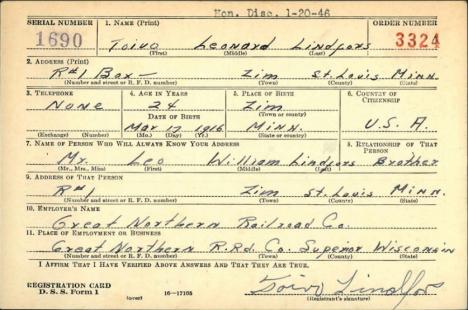 Hon. Disc. 1-20-46
SERIAL NUMBER 1. NAME (Print) ORDER NUMBER
1690 Toivo Leonard Lindfors 3324
(First) (Middle) (Last)
2. ADDRESS (Print)
R#1 Box — Zim St. Louis Minn.
(Number and street or R. F. D. number) (Town) (County) (State)
3. TELEPHONE 4. AGE IN YEARS 5. PLACE OF BIRTH 6. COUNTRY OF CITIZENSHIP
None 24 Zim
DATE OF BIRTH (Town or county)
Mar 17 1916 Minn. U. S. A.
(Exchange) (Number) (Mo.) (Day) (Yr.) (State or country)
7. NAME OF PERSON WHO WILL ALWAYS KNOW YOUR ADDRESS 8. RELATIONSHIP OF THAT PERSON
Mr. Leo William Lindfors Brother
(Mr., Mrs., Miss) (First) (Middle) (Last)
9. ADDRESS OF THAT PERSON
R#1 Zim St. Louis Minn.
(Number and street or R. F. D. number) (Town) (County) (State)
10. EMPLOYER'S NAME
Great Northern Railroad Co.
11. PLACE OF EMPLOYMENT OR BUSINESS
Great Northern R.Rd. Co. Superior Wisconsin
(Number and street or R. F. D. number) (Town) (County) (State)
I AFFIRM THAT I HAVE VERIFIED ABOVE ANSWERS AND THAT THEY ARE TRUE.
REGISTRATION CARD
D. S. S. Form 1 (over) 16—17105 Toivo Lindfors
(Registrant's signature)